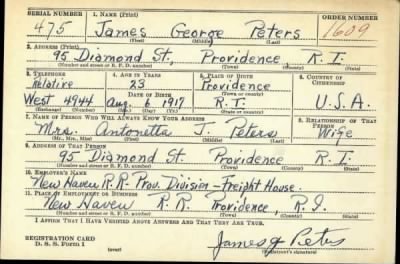 SERIAL NUMBER 1. NAME (Print) ORDER NUMBER
475 James George Peters 1609
(First) (Middle) (Last)
2. ADDRESS (Print)
95 Diamond St., Providence, R. I.
(Number and street or R. F. D. number) (Town) (County) (State)
3. TELEPHONE 4. AGE IN YEARS 5. PLACE OF BIRTH 6. COUNTRY OF CITIZENSHIP
Relative 23 Providence
DATE OF BIRTH (Town or county)
West 4944 Aug. 6 1917 R. I. U.S.A.
(Exchange) (Number) (Mo.) (Day) (Yr.) (State or country)
7. NAME OF PERSON WHO WILL ALWAYS KNOW YOUR ADDRESS 8. RELATIONSHIP OF THAT PERSON
Mrs. Antonetta J. Peters Wife
(Mr., Mrs., Miss) (First) (Middle) (Last)
9. ADDRESS OF THAT PERSON
95 Diamond St. Providence R. I.
(Number and street or R. F. D. number) (Town) (County) (State)
10. EMPLOYER'S NAME
New Haven R.R. Prov. Division-Freight House.
11. PLACE OF EMPLOYMENT OR BUSINESS
New Haven R. R. Providence, R. I.
(Number and street or R. F. D. number) (Town) (County) (State)
I AFFIRM THAT I HAVE VERIFIED ABOVE ANSWERS AND THAT THEY ARE TRUE.
REGISTRATION CARD
D. S. S. Form 1 (over) James G Peters
(Registrant's signature)